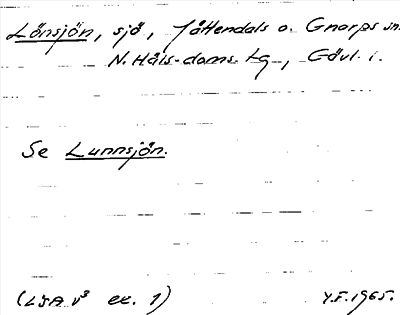 Lönsjön, sjö, Jättendals o. Gnarps sn.
N. Häls-doms. tg., Gävl. l.
Se Lunnsjön.
(LSA V³ ex. 1) Y.F. 1965.